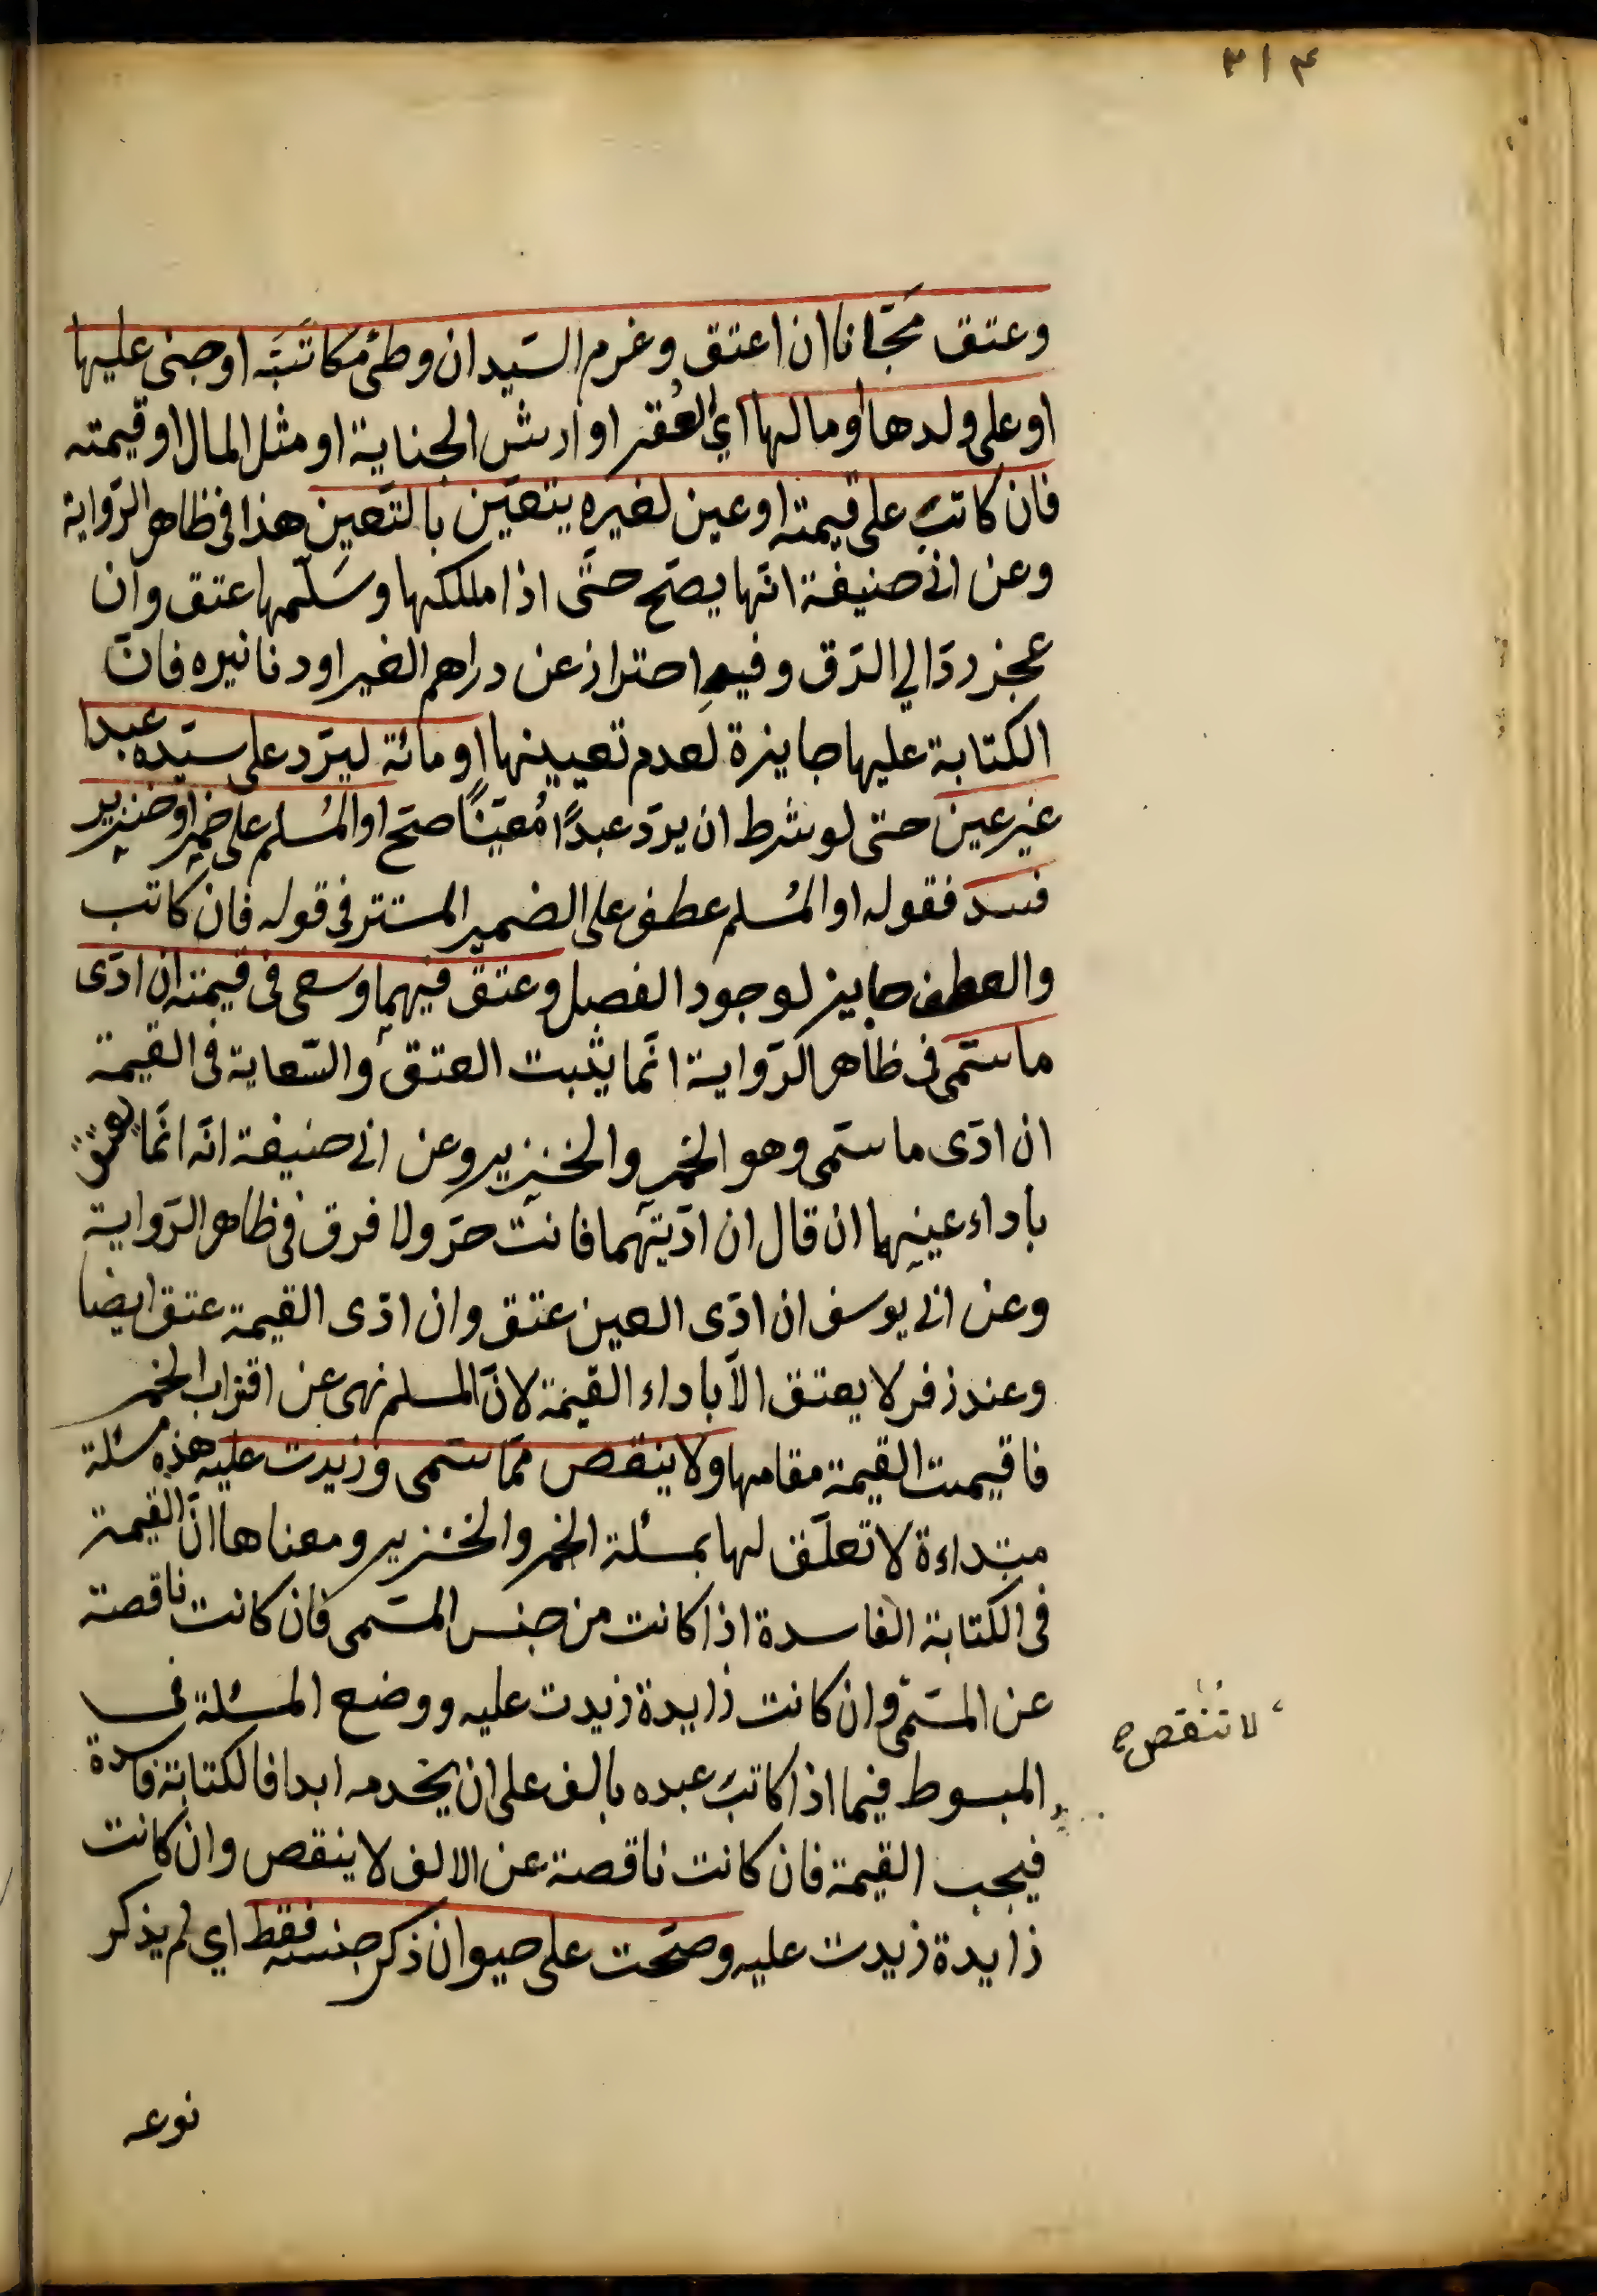 ٣١٤
وعتق مجّانا ان اعتق وغرم السّيد ان وطئ مكاتَبَتَه او جنى عليها
او على ولدها او مالها اي العُقر او ارش الجناية او مثل المال او قيمته
فان كاتب على قيمته او عين لغيره يتعيّن بالتّعيين هذا في ظاهر الرّواية
وعن ابي حنيفة انّها يصحّ حتّى اذا ملكها وسلّمها عتق وان
عجز ردّ الي الرّق وفيه احتراز عن دراهم الغير او دنانيره فانّ
الكتابة عليها جايزة لعدم تعيينها او مائة ليردّ على سيّده عبدا
غير عين حتى لو شرط ان يردّ عبدًا مُعيّنًا صحّ او المُسلم على خمر او خنزير
فسد فقوله او المُسلم عطف على الضمير المستتر في قوله فان كاتب
والعطف جايز لوجود الفصل وعتق فيهما وسعى في قيمته ان ادّى
ما سمّى في ظاهر الرّواية انّما يثبت العتق والسّعاية في القيمة
ان ادّى ما سمّى وهو الخمر والخنزير وعن ابي حنيفة انّه انّما يعتق
باداء عينهما ان قال ان ادّيتهما فانت حرّ ولا فرق في ظاهر الرّواية
وعن ابي يوسف ان ادّى العين عتق وان ادّى القيمة عتق ايضا
وعند زفر لا يعتق الّا باداء القيمة لانّ المسلم نهى عن اقتراب الخمر
فاقيمت القيمة مقامها ولا ينقص ممّا سمّى وزيدت عليه هذه مسئلة
مبتداءة لا تعلّق لها بمسئلة الخمر والخنزير ومعناها انّ القيمة
في الكتابة الفاسدة اذا كانت من جنس المسّمى فان كانت ناقصة
عن المسمّى وان كانت زايدة زيدت عليه ووضع المسئلة في
لا تنقص صح
المبسوط فيما اذا كاتب عبده بالف على ان يخدمه ابدا فالكتابة فاسدة
فيجب القيمة فان كانت ناقصة عن الالف لا ينقص وان كانت
زايدة زيدت عليه وصحّت على حيوان ذكر جنسه فقط اي لم يذكر
نوعه